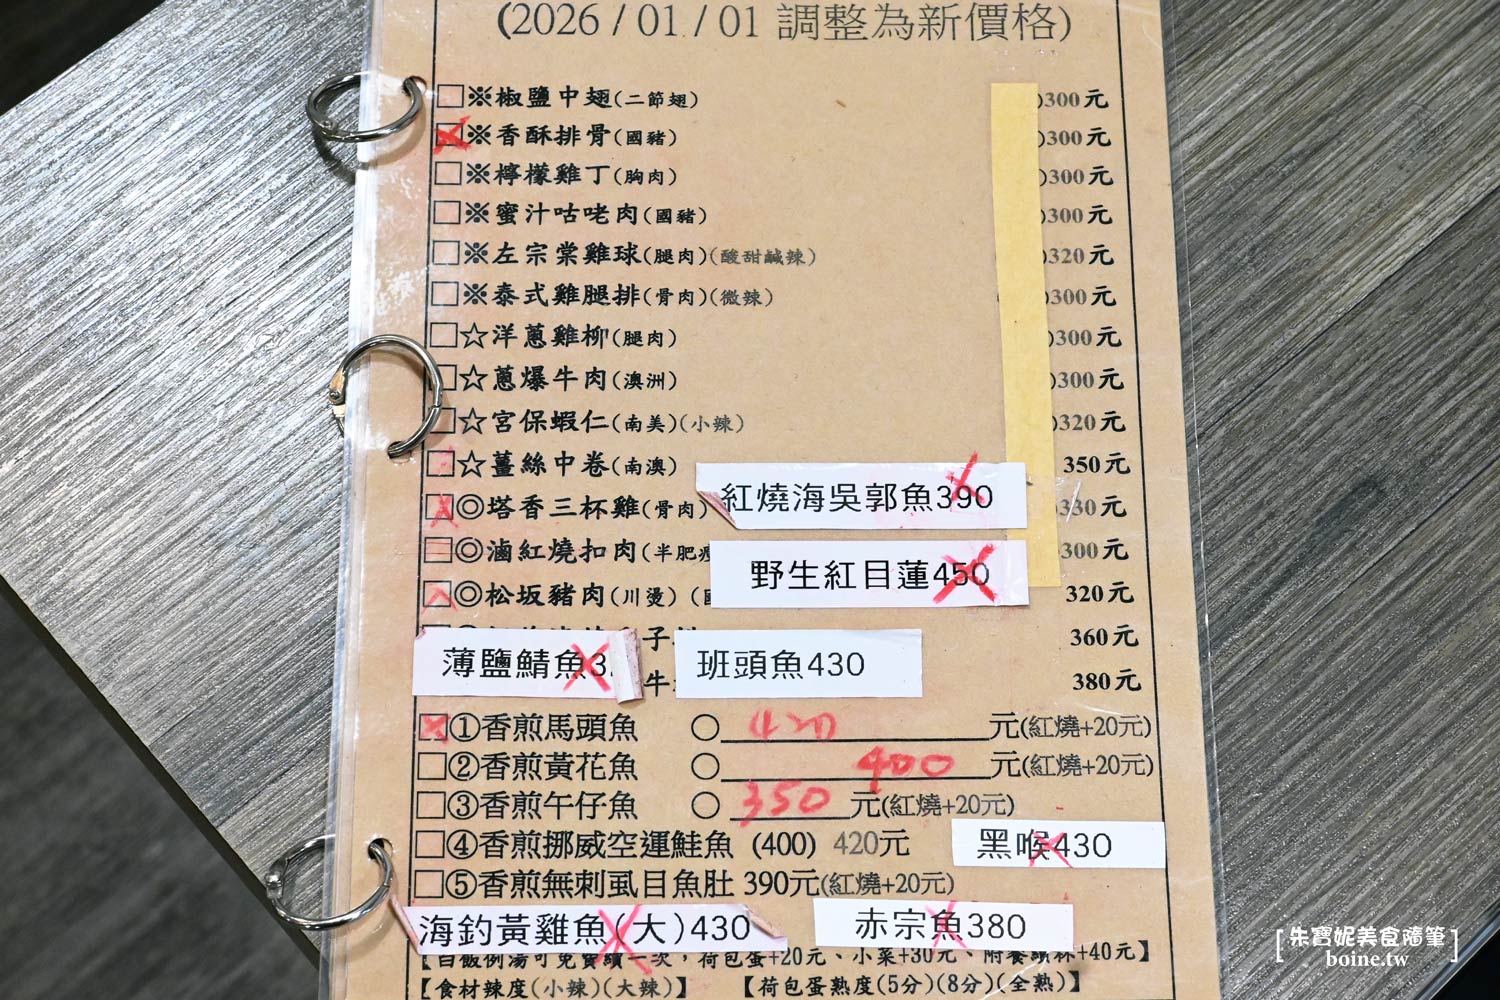 (2026 / 01 / 01 調整為新價格)
□※椒鹽中翅(二節翅) )300元
□※香酥排骨(國豬) )300元
□※檸檬雞丁(胸肉) )300元
□※蜜汁咕咾肉(國豬) )300元
□※左宗棠雞球(腿肉)(酸甜鹹辣) )320元
□※泰式雞腿排(骨肉)(微辣) )300元
□☆洋蔥雞柳(腿肉) )300元
□☆蔥爆牛肉(澳洲) )300元
□☆宮保蝦仁(南美)(小辣) )320元
□☆薑絲中卷(南澳) 350元
紅燒海吳郭魚390
□◎塔香三杯雞(骨肉) 330元
□◎滷紅燒扣肉(半肥瘦 300元
野生紅目蓮450
□◎松坂豬肉(川燙) 320元
子 360元
薄鹽鯖魚3
班頭魚430
牛 380元
□①香煎馬頭魚 ○ 420 元(紅燒+20元)
□②香煎黃花魚 ○ 400 元(紅燒+20元)
□③香煎午仔魚 ○ 350 元(紅燒+20元)
□④香煎挪威空運鮭魚 (400) 420元
黑喉430
□⑤香煎無刺虱目魚肚 390元(紅燒+20元)
海釣黃雞魚(大)430
赤宗魚380
【白飯例湯可免費續一次，荷包蛋+20元、小菜+30元、附餐 +40元】
【食材辣度(小辣)(大辣)】 【荷包蛋熟度(5分)(8分)(全熟)】
[朱寶妮美食隨筆]
boine.tw